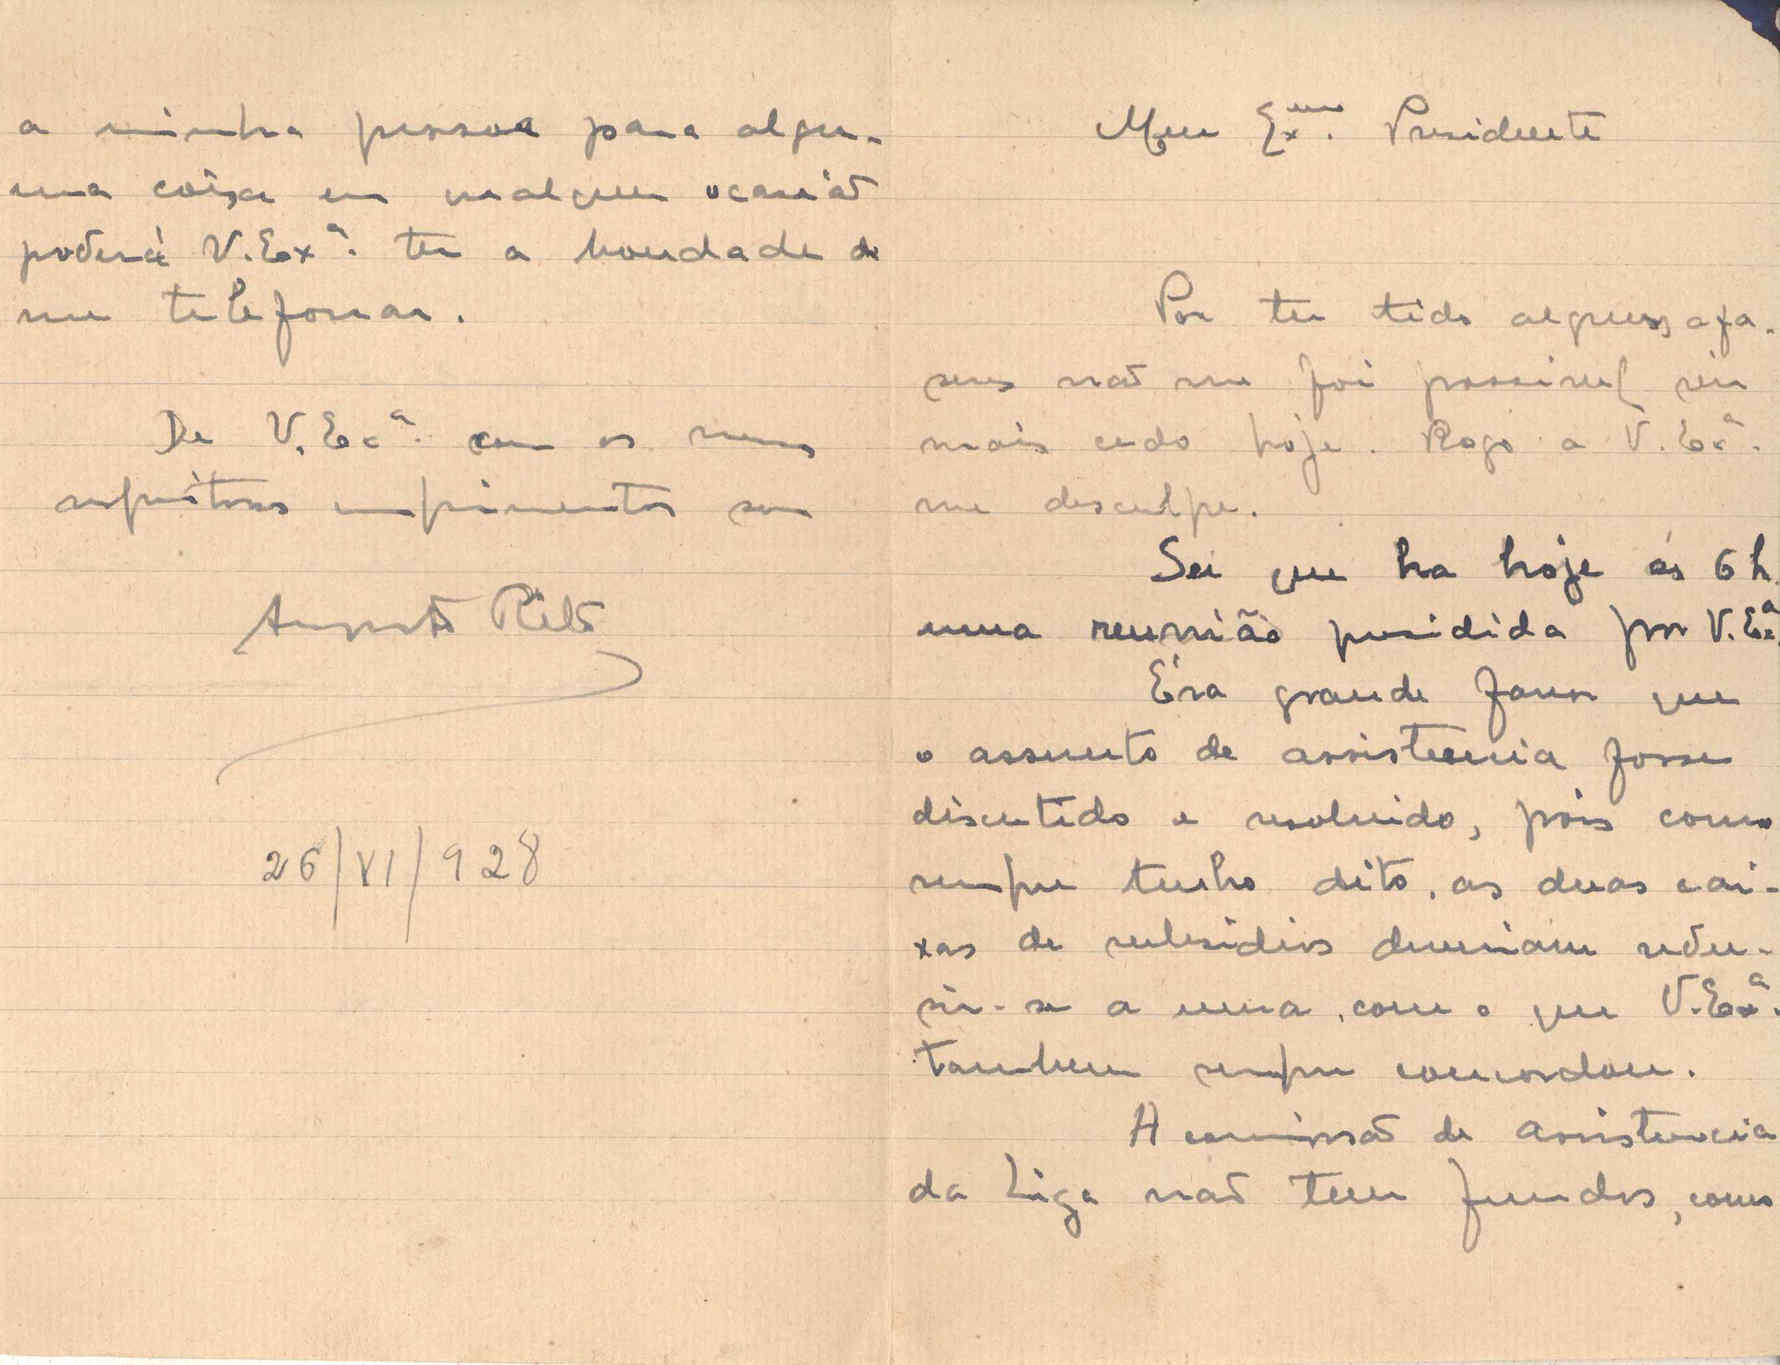 Meu Exmo. Presidente
Por ter tido alguns afa-
seres não me foi possivel vir
mais cedo hoje. Rogo a V. Exª.
me desculpe.
Sei que ha hoje ás 6 h.
uma reunião presidida por V. Exª.
Éra grande favor que
o assunto de assistencia fosse
discutido e resolvido, pois como
sempre tenho dito, as duas cai-
xas de subsidios deveriam redu-
sir-se a uma, com o que V. Exª.
tambem sempre concordou.
A comissão de assistencia
da Liga não tem fundos, como
a minha pessoa para algu-
ma coisa em qualquer ocasião
poderá V. Exª. ter a bondade de
me telefonar.
De V. Exª. com os meus
respeitosos cumprimentos sou
Augusto
26/VI/928